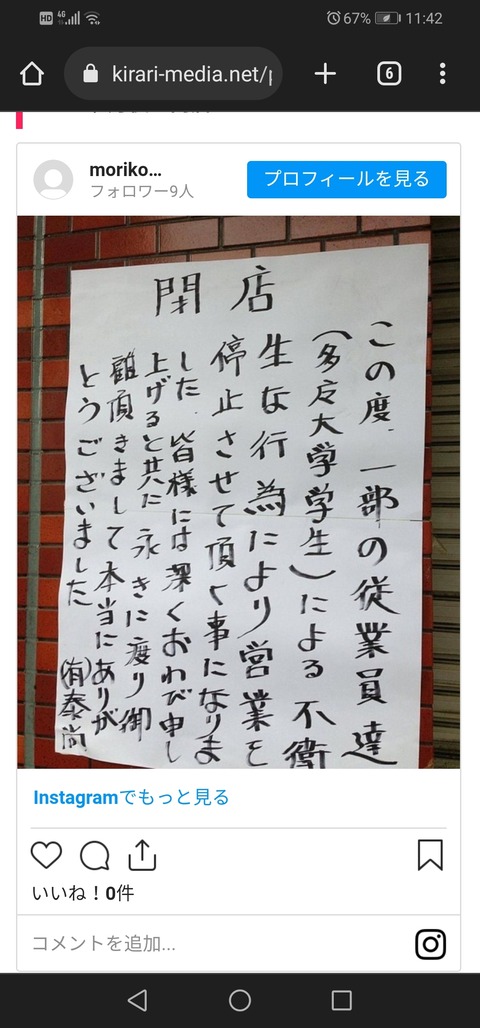 HD 4G 67% 11:42
kirari-media.net/p
6
moriko…
フォロワー9人
プロフィールを見る
閉店
この度、一部の従業員達
(多摩大学学生)による不衛
生な行為により営業を
停止させて頂く事になりま
した、皆様には深くおわび申し
上げると共に永きに渡り御
顧頂きまして本当にありが
とうございました (有)泰尚
Instagramでもっと見る
いいね!0件
コメントを追加...